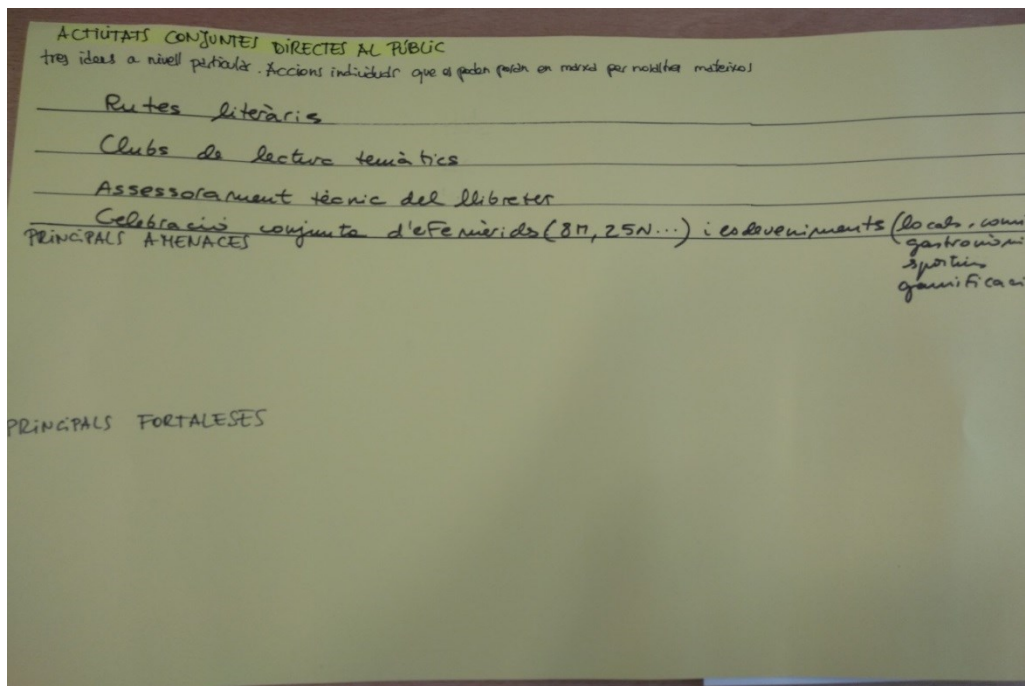 ACTIVITATS CONJUNTES DIRECTES AL PÚBLIC
tres ideas a nivell particular. Accions individuals que es poden posar en marxa per nosaltres mateixos
Rutes literàris
Clubs de lectura temàtics
Assessorament tècnic del llibreter
Celebració conjunta d'eFemèrids (8M, 25N...) i esdeveniments (locals,
PRINCIPALS AMENACES
PRINCIPALS FORTALESES